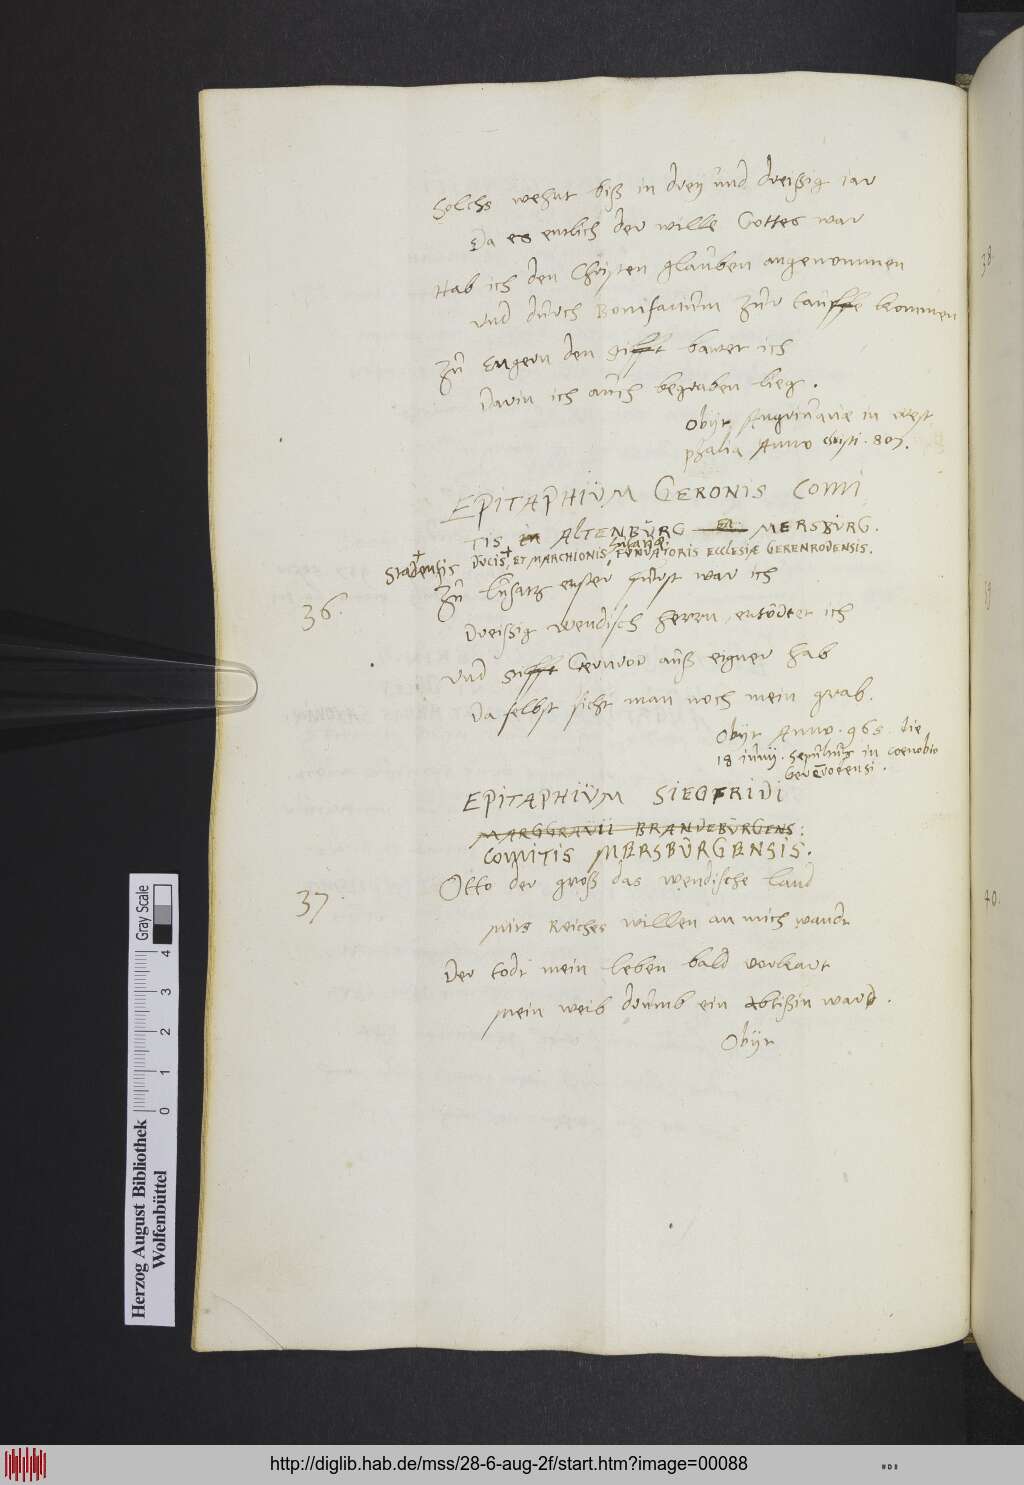 Solchs wehrt biß in drey und dreißig iar
Da es entlich der wille Gottes war
Hab ich den Christen glauben angenommen
Und durch Bonifacium zur tauffe kommen
Zu Engern den stifft bauwet ich
Darin ich auch begraben lieg.
Obijt Angrivariae in West
phalia Anno Christi. 807.
EPITAPHIUM GERONIS COMI
TIS in ALTENBURG et MERSBURG.
Stadensis DUCIS, ET MARCHIONIS Lusatiae, FUNDATORIS ECCLESIAE GERENRODENSIS.
36.
Zu Lusatz erster furst war ich
Dreissig wendisch herrn entödtet ich
Und stifft Gernrod auß eigner hab
Daselbst sicht man noch mein grab.
Obijt Anno. 965. die
18 iunij. Sepultus in coenobio
Gerenrodensi.
EPITAPHIUM SIEGFRIDI
MARGGRAVII BRANDEBURGENS:
COMITIS MERSBURGENSIS.
37.
Otto der groß das wendische land
Mits Reiches willen an mich wandt
Der todt mein leben bald verkart
Mein weib drumb ein Abtißin ward.
Obijt
38.
39
40.
Herzog August Bibliothek
Wolfenbüttel
0 1 2 3 4
Gray Scale
http://diglib.hab.de/mss/28-6-aug-2f/start.htm?image=00088